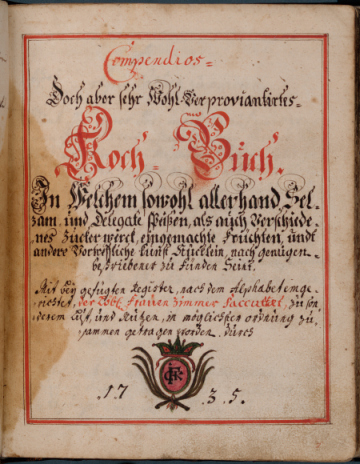 Compendios-
Doch aber sehr Wohl-Verproviantirtes-
Koch-Buch.
In Welchem sowohl allerhand Sel-
zam, und Delegate Speißen, als auch Verschide-
nes Zucker werck, eingemachte Früchten, undt
andere Vortreffliche kunst Stücklein, nach genügen-
beschribener zu finden Seint,
Mit bey gefügten Register, nach dem Alphabet inge
richtet, der Löbl. Frauen Zimmer zu son
derem Lust, und Nutzen, in möglichster ordnung zu,
sammen getragen worden.
17 35.